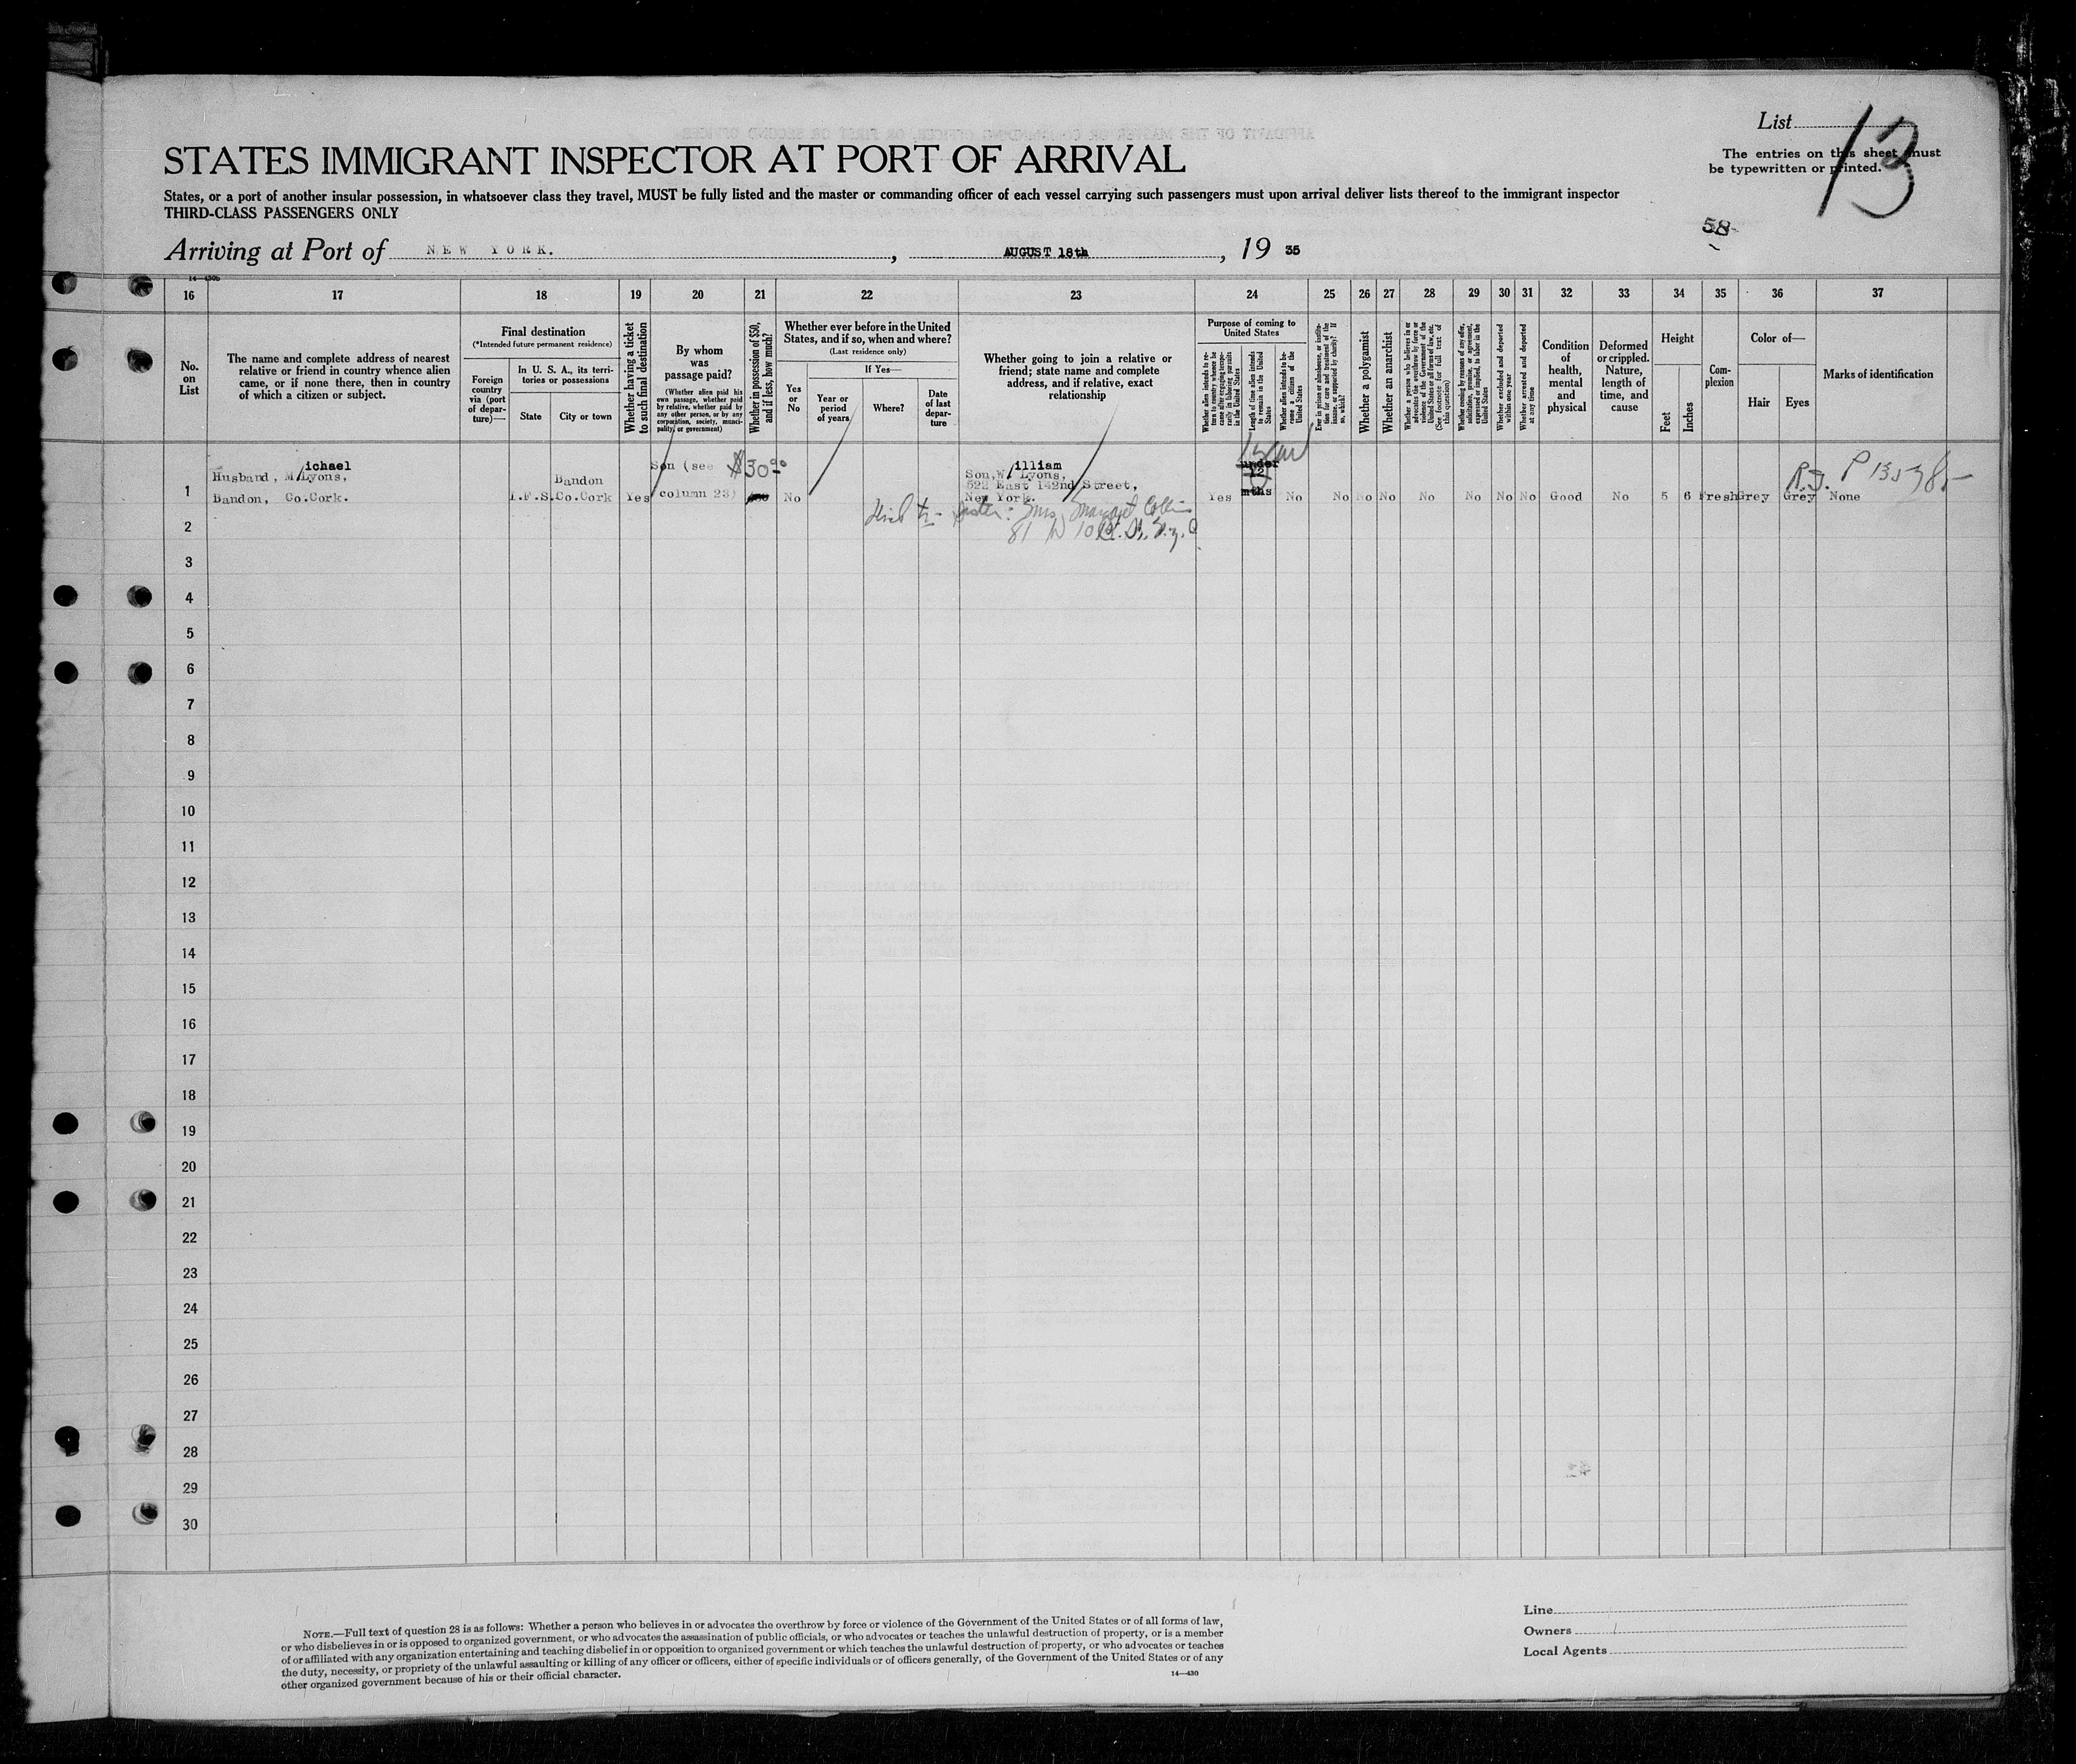 List 13
STATES IMMIGRANT INSPECTOR AT PORT OF ARRIVAL
The entries on this sheet must
be typewritten or printed.
States, or a port of another insular possession, in whatsoever class they travel, MUST be fully listed and the master or commanding officer of each vessel carrying such passengers must upon arrival deliver lists thereof to the immigrant inspector
THIRD-CLASS PASSENGERS ONLY
58
Arriving at Port of NEW YORK. , AUGUST 18th , 19 35
14—430b
16 17 18 19 20 21 22 23 24 25 26 27 28 29 30 31 32 33 34 35 36 37
No. on List
The name and complete address of nearest
relative or friend in country whence alien
came, or if none there, then in country
of which a citizen or subject.
Final destination
(*Intended future permanent residence)
Foreign country via (port of departure)—
In U. S. A., its territories or possessions
State
City or town
Whether having a ticket to such final destination
By whom was passage paid?
(Whether alien paid his own passage, whether paid by relative, whether paid by any other person, or by any corporation, society, municipality, or government)
Whether in possession of $50, and if less, how much?
Whether ever before in the United States, and if so, when and where?
(Last residence only)
Yes or No
If Yes—
Year or period of years
Where?
Date of last departure
Whether going to join a relative or
friend; state name and complete
address, and if relative, exact
relationship
Purpose of coming to United States
Whether alien intends to return to country whence he came after engaging temporarily in laboring pursuits in the United States
Length of time alien intends to remain in the United States
Whether alien intends to become a citizen of the United States
Ever in prison or almshouse, or institution for care and treatment of the insane, or supported by charity? If so, which?
Whether a polygamist
Whether an anarchist
Whether a person who believes in or advocates the overthrow by force or violence of the Government of the United States or all forms of law, etc. (See footnote for full text of this question)
Whether coming by reason of any offer, solicitation, promise, or agreement, expressed or implied, to labor in the United States
Whether excluded and deported within one year
Whether arrested and deported at any time
Condition of health, mental and physical
Deformed or crippled. Nature, length of time, and cause
Height
Feet
Inches
Complexion
Color of—
Hair
Eyes
Marks of identification
1
Husband, Michael Lyons,
Bandon, Co.Cork.
I.F.S.
Bandon
Co.Cork
Yes
Son (see
column 23)
$30.00
No
Son, William Lyons,
522 East 142nd Street,
New York.
Yes
1 year
under
12
mths
No No No No No No No No Good No 5 6 Fresh Grey Grey None
R.S. P 135785
sister: Mrs Margaret Collins
81 W 10 St. N.Y.C
2
3
4
5
6
7
8
9
10
11
12
13
14
15
16
17
18
19
20
21
22
23
24
25
26
27
28
29
30
NOTE.—Full text of question 28 is as follows: Whether a person who believes in or advocates the overthrow by force or violence of the Government of the United States or of all forms of law,
or who disbelieves in or is opposed to organized government, or who advocates the assassination of public officials, or who advocates or teaches the unlawful destruction of property, or is a member
of or affiliated with any organization entertaining and teaching disbelief in or opposition to organized government or which teaches the unlawful destruction of property, or who advocates or teaches
the duty, necessity, or propriety of the unlawful assaulting or killing of any officer or officers, either of specific individuals or of officers generally, of the Government of the United States or of any
other organized government because of his or their official character.
14—430
Line
Owners
Local Agents